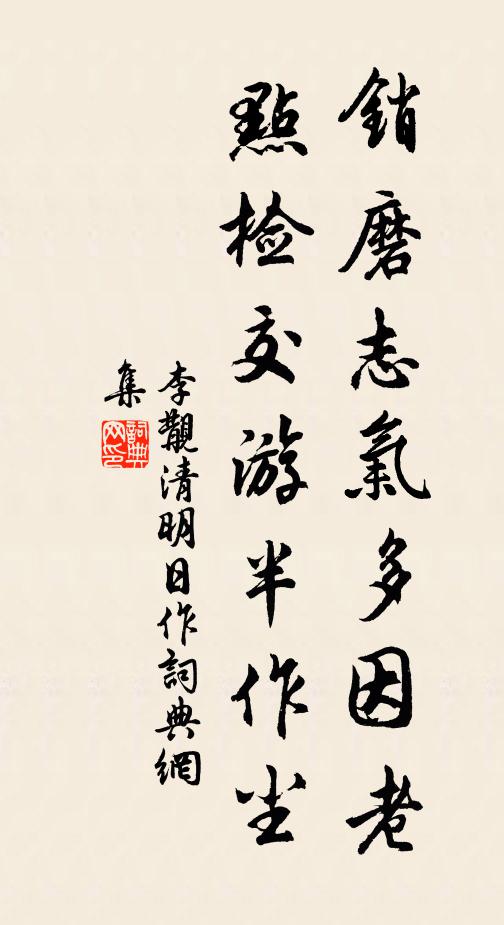 銷磨志氣多因老
點檢交游半作尘
李觀清明日作詞典網
集
詞典网印